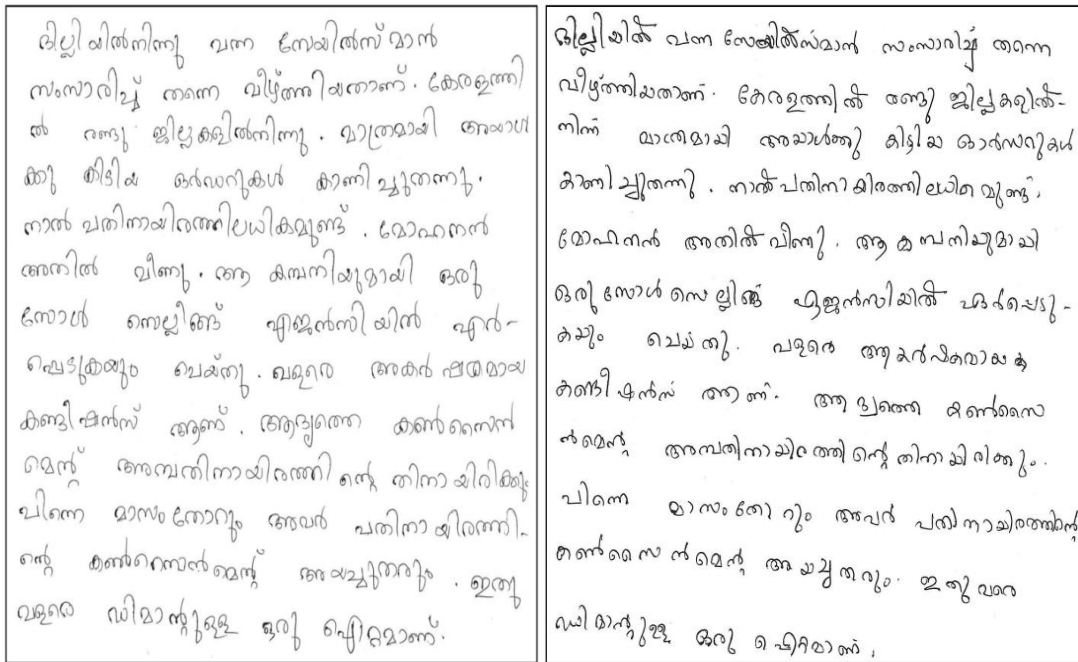 ദില്ലിയിൽനിന്നു വന്ന സേയിൽസ്മാൻ
സംസാരിച്ച് തന്നെ വീഴ്ത്തിയതാണ്. കേരളത്തി
ൽ രണ്ടു ജില്ലകളിൽനിന്നു. മാത്രമായി അയാൾ
ക്കു കിട്ടിയ ഒർഡറുകൾ കാണിച്ചുതന്നു.
നാൽപതിനായിരത്തിലധികമുണ്ട്. മോഹനൻ
അതിൽ വീണു. ആ കമ്പനിയുമായി ഒരു
സോൾ സെല്ലിങ്ങ് എജൻസിയിൽ എർ-
പ്പെടുകയും ചെയ്തു. വളരെ അകർഷമായ
കണ്ടീഷൻസ് ആണ്. ആദ്യത്തെ കൺസൈൻ
മെന്റ് അമ്പതിനായിരത്തിന്റെതിനായിരിക്കും
പിന്നെ മാസംതോറും അവർ പതിനായിരത്തി-
ന്റെ കൺസൈൻമെന്റ് അയച്ചുതരും. ഇതു
വളരെ ഡിമാന്റുള്ള ഒരു ഐറ്റമാണ്.
ദില്ലിയിൽ വന്ന സേയിൽസ്മാൻ സംസാരിച്ച് തന്നെ
വീഴ്ത്തിയതാണ്. കേരളത്തിൽ രണ്ടു ജില്ലകളിൽ-
നിന്ന് മാത്രമായി അയാൾക്കു കിട്ടിയ ഓർഡറുകൾ
കാണിച്ചുതന്നു. നാൽപതിനായിരത്തിലധികമുണ്ട്.
മോഹനൻ അതിൽ വീണു. ആ കമ്പനിയുമായി
ഒരു സോൾ സെല്ലിങ്ങ് ഏജൻസിയിൽ ഏർപ്പെടു-
കയും ചെയ്തു. വളരെ ആകർഷകവായ
കണ്ടീഷൻസ് ആണ്. ആദ്യത്തെ കൺസൈ
ൻമെന്റ് അമ്പതിനായിരത്തിന്റെതിനായിരിക്കും.
പിന്നെ മാസംതോറും അവർ പതിനായിരത്തിന്റെ
കൺസൈൻമെന്റ് അയച്ചുതരും. ഇതു വരെ
ഡിമാന്റുള്ള ഒരു ഐറ്റമാണ്.